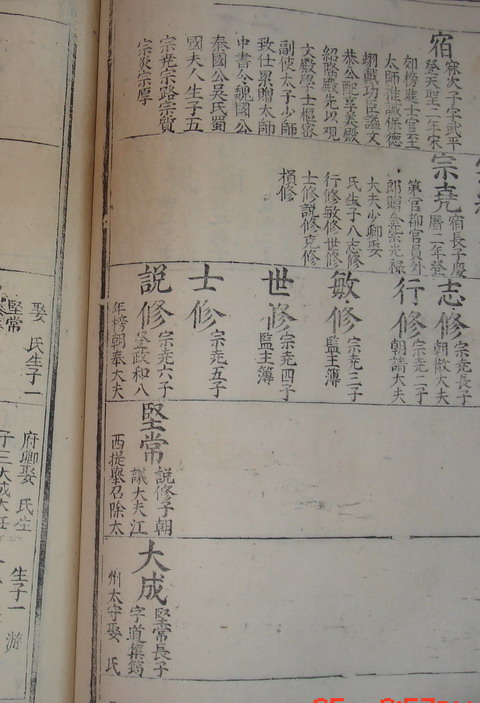 宿
寀次子字武平
登天聖二年宋
郊榜進士官至
太師推誠保德
翊戴功臣謚文
恭公配享美殿
紹聖殿先以觀
文殿學士樞密
副使太子少師
致仕累贈太師
中書令魏國公
秦國公吳氏蜀
國夫人生子五
宗堯宗路宗質
宗炎宗厚
宗堯
宿長子慶
曆二年登
第官都官員外
郎贈金紫光祿
大夫少卿娶
氏生子八志修
行修敏修世修
士修説修克修
損修
志修
宗堯長子
朝散大夫
行修
宗堯二子
朝請大夫
敏修
宗堯三子
監主簿
世修
宗堯四子
監主簿
士修
宗堯五子
説修
宗堯六子
登政和八
年榜朝奉大夫
堅常
説修子朝
議大夫江
西提舉召除太
府卿娶 氏生
子三大成大任
大成
堅常長子
字道集鎬
州太守娶 氏
生子一
娶 氏生子一
堅常
游